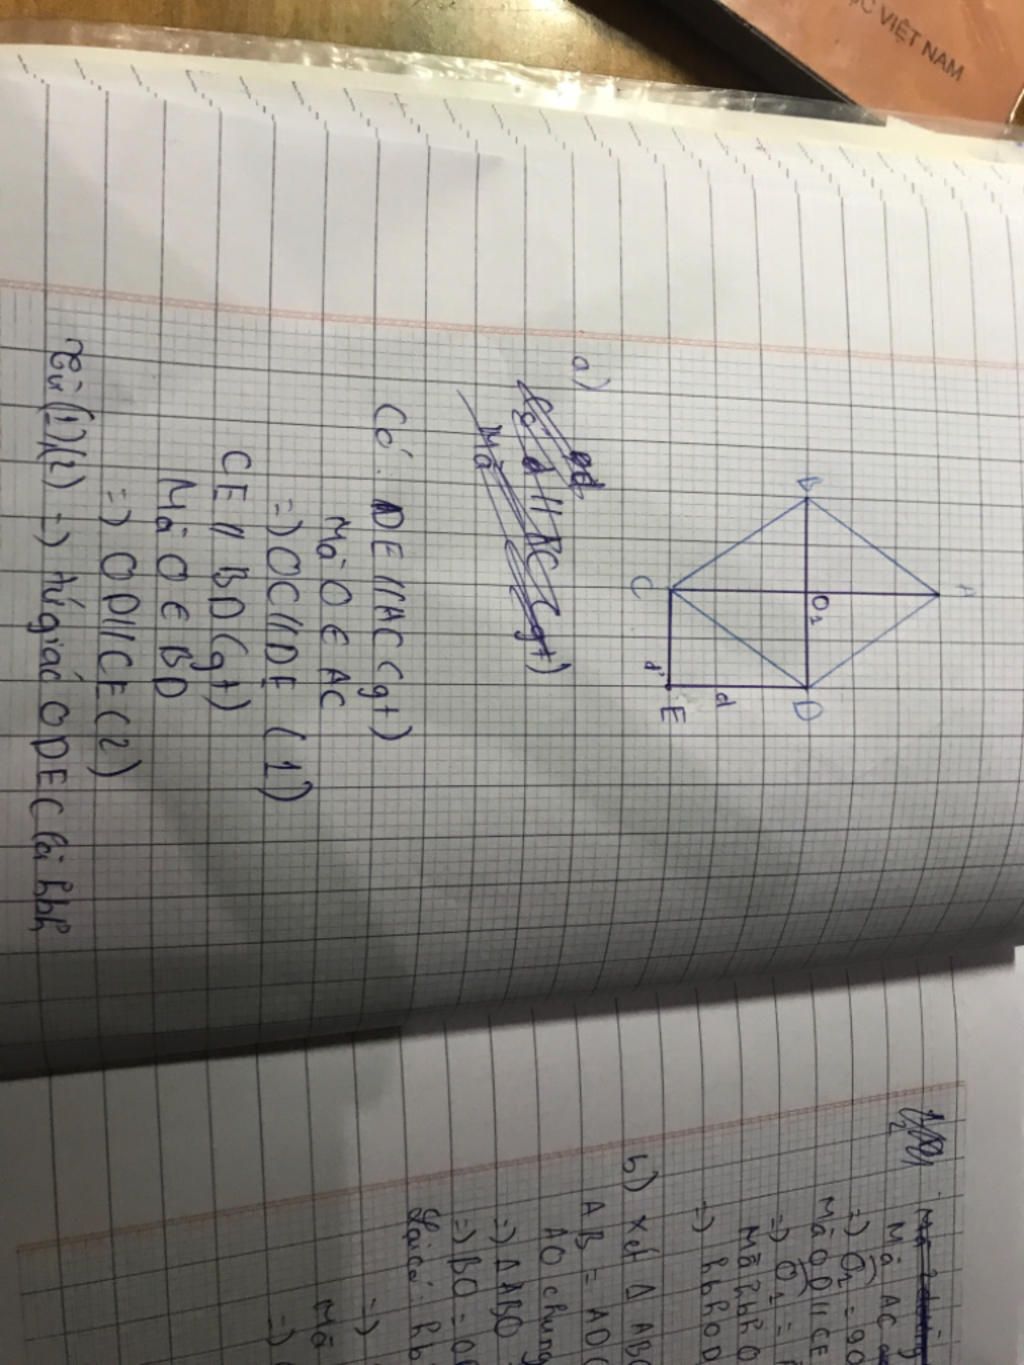 ỌC VIỆT NAM
A
B
O₁
D
C
d
d'
E
a)
Có d // AC (gt)
Mà
Có: DE // AC (gt)
Mà O ∈ AC
=) OC // DE (1)
CE // BD (gt)
Mà O ∈ BD
=) OD // CE (2)
Từ (1), (2) =) tứ giác ODEC là hbh
Mà AC
=) O₁ = 90
Mà OD // CE
=) O₁ =
Mà hbh O
=) hbh OD
b) Xét Δ ABO
AB = AD (
AO chung
=) Δ ABO
=) BO = O
Lại có: hb
=)
Mà
=)